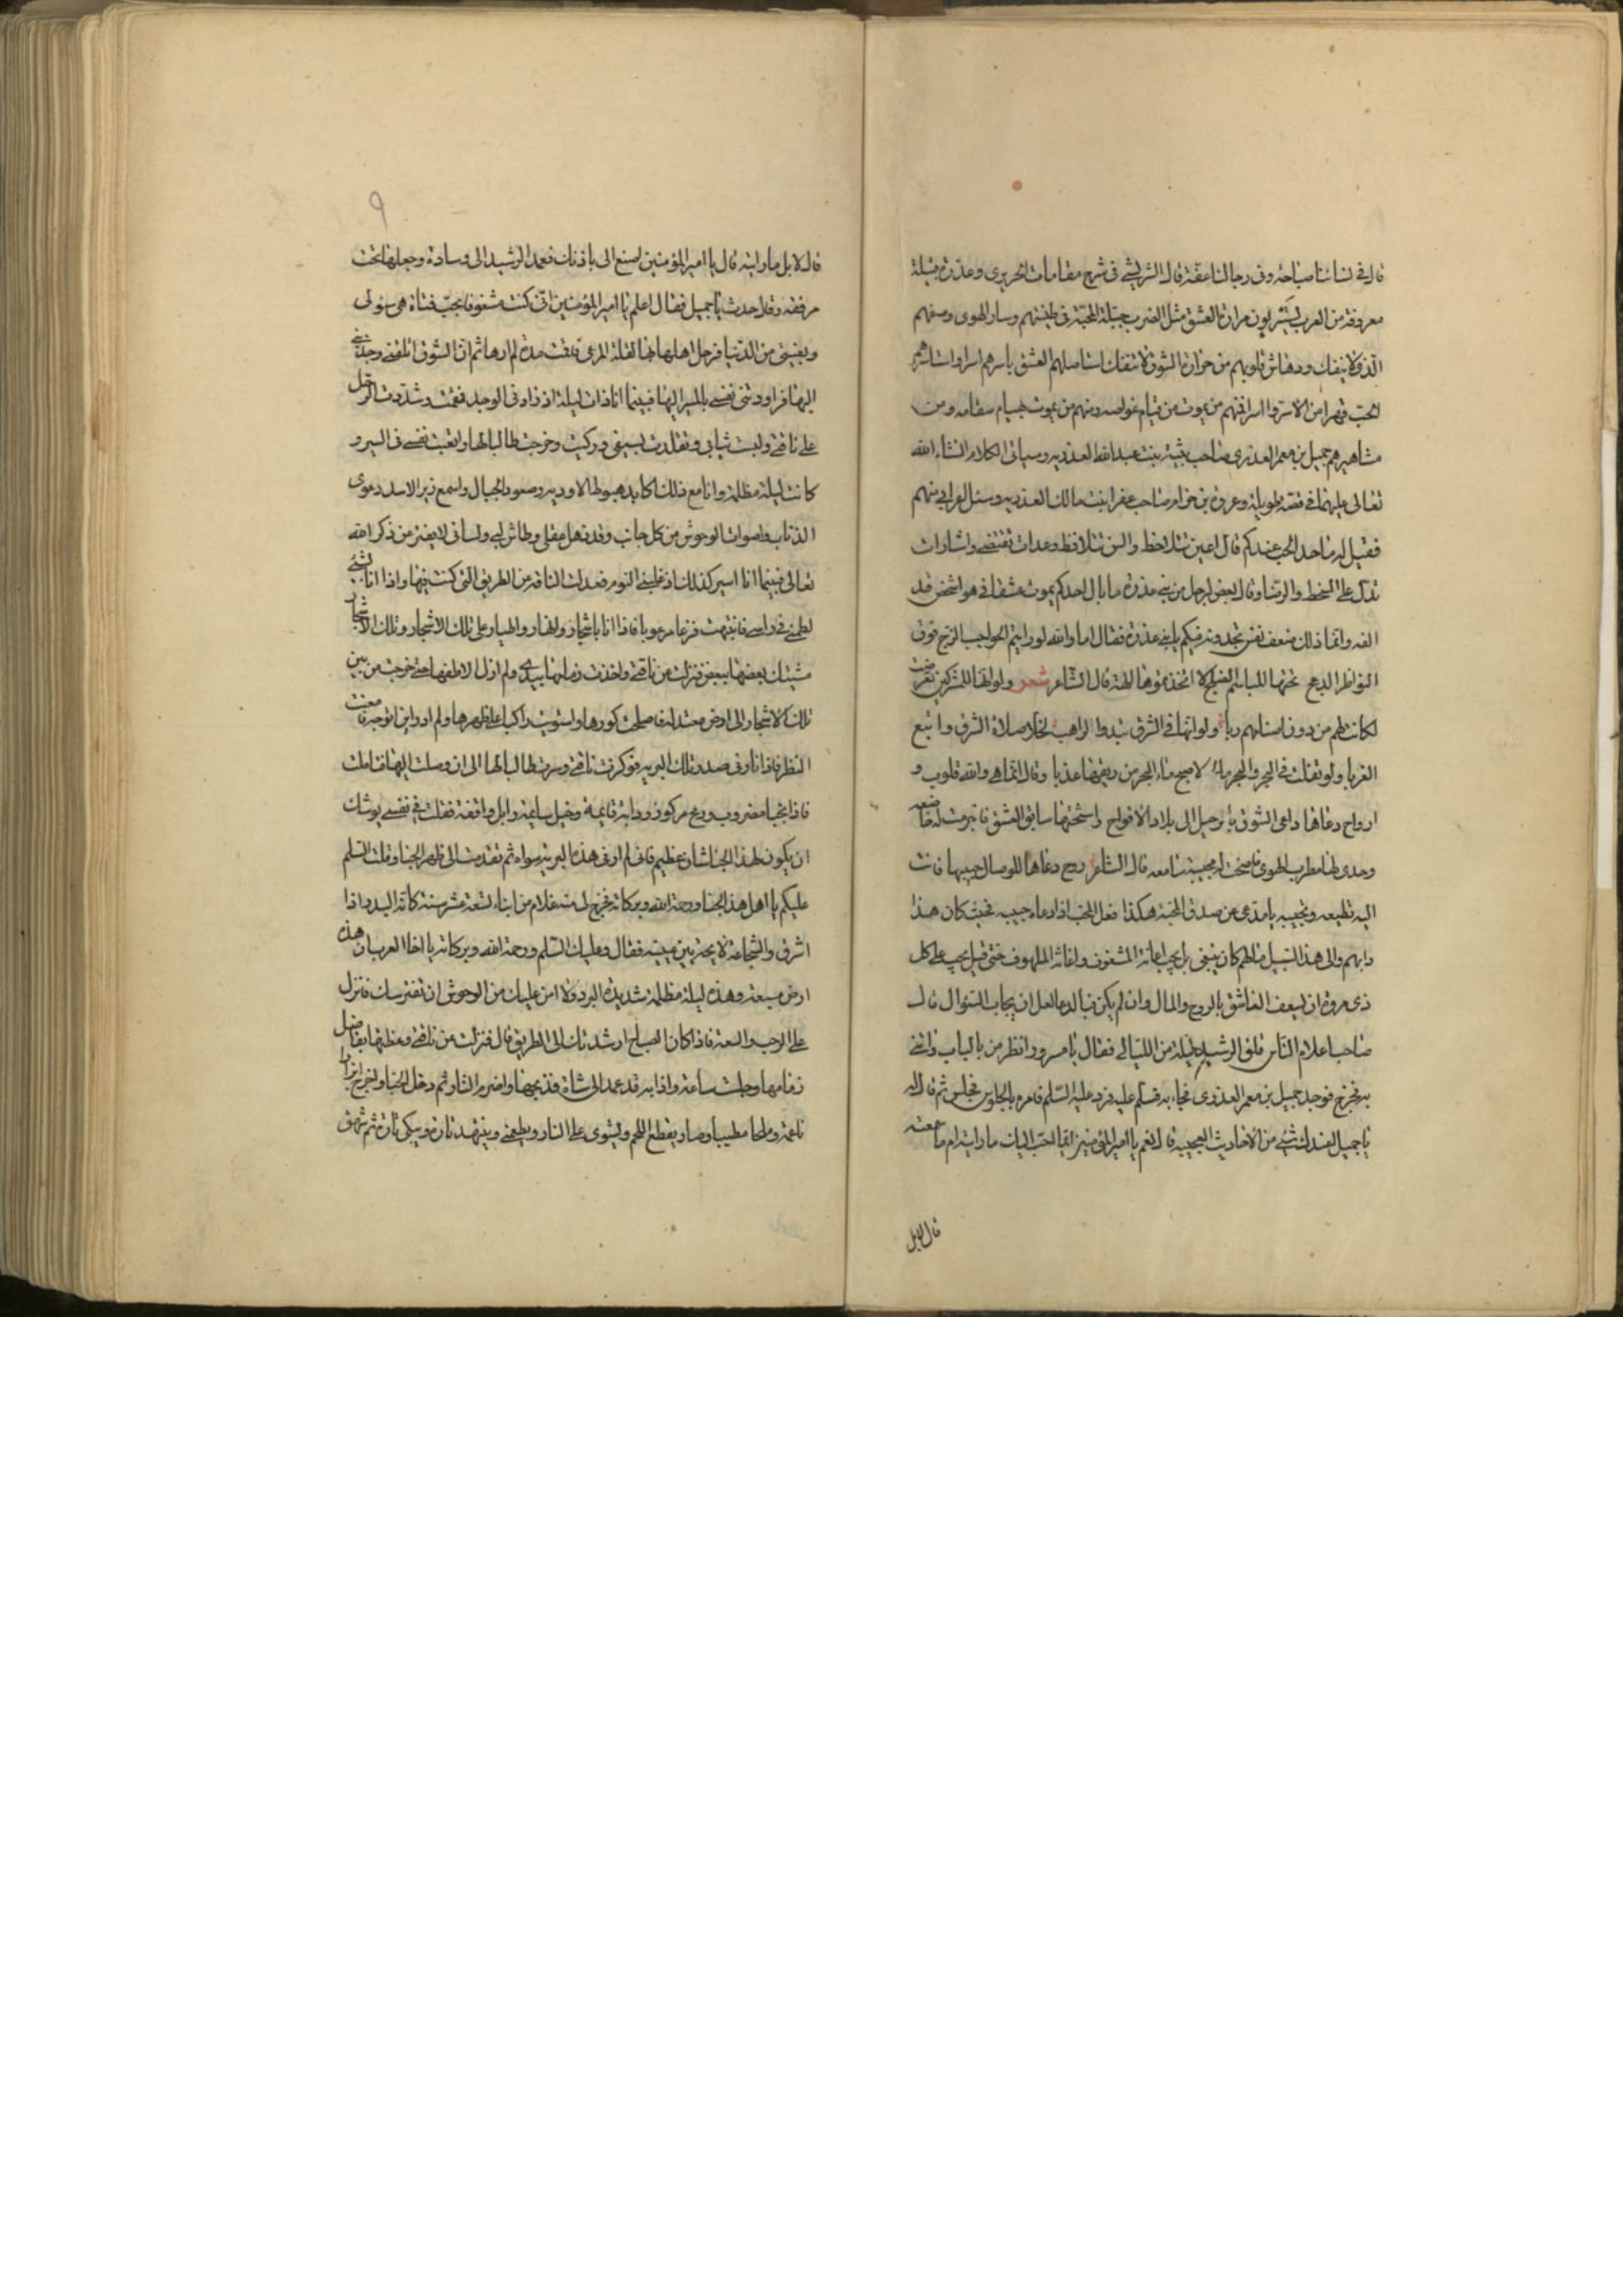 قال في نسائنا صباحة وفي رجالنا عفة قال الشريشي في شرح مقامات الحريري وعذرة قبيلة
معروفة من العرب يشربون مرارة العشق مثل الضرب جبلة المحبة في طينتهم وسار الهوى وصفهم
الذي لا ينفك ودهاش قلوبهم من حرارة الشوق لا تنفك استاصلهم العشق باسرهم اسرا واستاسرهم
الحب قهرا من الاسر وا اسرا فمنهم من يموت من قيام غوامه ومنهم من يموت سقامه ومن
مشاهيرهم جميل بن معمر العذري صاحب بثينة بنت عبد الله العذرية وسياتي الكلام انشاء الله
تعالى عليهما في قصة طويلة وعروة بن حزام صاحب عفرا بنت مالك العذرية وسئل اعرابي منهم
فقيل له ما حد الحب عندكم قال اعين تتلاحظ والسن تتلافظ وعدات تقتضي واشارات
تدل على السخط والرضا وقال بعض لرجل من بني عذرة ما بال احدكم يموت عشقا في هوا شخص قد
الفه وانما ذلك ضعف نفس تجدونه فيكم يا بني عذرة فقال اما والله لو رايتم الحواجب الزج فوق
النواظر الدعج تحتها المباسم الفلج لاتخذتموها الهة قال الشاعر شعر ولو انها للمشركين تعرضت
لكانت لهم من دون اصنامهم ربا ولو انها في الشرق تبدو لراهب لخلا صلاة الشرق واتبع
الغربا ولو تفلت في البحر والبحر مالح لاصبح ماء البحر من ريقها عذبا وقال انما هي والله قلوب و
ارواح دعاها داعي الشوق بالرحيل الى بلاد الافراح واستحثها سابق العشق فانبرمت له خاضعه
وحدى لها مطرب الهوى فاصخت له مجيبة سامعه قال الشاعر روح دعاها للوصال حبيبها فاتت
اليه تطيعه وتجيبه يا مدعي من صدق المحبة هكذا فعل المحب اذا دعاه حبيبه فحيث كان هذا
دابهم والى هذا السبيل مالهم كان ينبغي بل يجب اعانة المشغوف واغاثة الملهوف حتى قيل يجب على كل
ذي مروة ان يسعف العاشق بالروح والمال وان لم يكن فبالدعا لعل ان يجاب السؤال قال
صاحب اعلام الناس قلق الرشيد ليلة من الليالي فقال يا مسرور انظر من بالباب واتني
به فخرج فوجد جميل بن معمر العذري فجاء به فسلم عليه فرد عليه السلم فامره بالجلوس فجلس ثم قال له
يا جميل اعندك شيء من الاحاديث العجيبة قال نعم يا امير المؤمنين ايما احب اليك ما رايته ام ما سمعته
قال لا بل
٩
قال لا بل ما رايته قال يا امير المؤمنين اصنع الى باذنك فعمد الرشيد الى وسادة وجعلها تحت
مرفقه وقال حدث يا جميل فقال اعلم يا امير المؤمنين اني كنت مشغوفا بحب فتاة هي سولي
وبغيتي من الدنيا فرحل اهلها بها لقلة المرعى فبقيت مدة لم ارها ثم ان الشوق اقلقني وجذبني
اليها فراودتني نفسي بالمسير اليها فبينما انا ذات ليلة اذ زاد في الوجد فقمت وشددت الرحل
على ناقتي ولبست ثيابي وتقلدت بسيفي وركبت وخرجت طالبا لها واتعبت نفسي في السير و
كانت ليلة مظلمة وانا مع ذلك اكابد هبوط الاودية وصعود الجبال واسمع زير الاسد وعوي
الذئاب واصوات الوحوش من كل جانب وقد ذهل عقلي وطاش لبي ولساني لا يفتر من ذكر الله
تعالى فبينما انا اسير كذلك اذ غلبني النوم فعدلت الناقة عن الطريق التي كنت فيها واذا انا بشيء
لطمني في راسي فانتبهت فزعا مرعوبا فاذا انا باشجار وانهار واطيار على تلك الاشجار وتلك الاشجار
مشتبك بعضها ببعض فنزلت من ناقتي واخذت زمامها بيدي ولم ازل الاطفها حتى خرجت من بين
تلك الاشجار الى ارض معتدلة فاصلحت كورها واستويت راكبا على ظهرها ولم ادر اين اتوجه فامعنت
النظر فاذا نار في صدر تلك البرية فوكزت ناقتي وسرت طالبا لها الى ان وصلت اليها فتاملت
فاذا بخبا مضروب ورمح مركوز ودابة قايمة وخيل سايمة وابل واقفة فقلت في نفسي يوشك
ان يكون لهذا الخبا شان عظيم فاني لم ار في هذه البرية سواه ثم تقدمت الى ظهر الخبا وقلت السلم
عليكم يا اهل هذا الخبا ورحمة الله وبركاته فخرج لي منه غلام من ابناء تسعة عشر سنة كانه البدر اذا
اشرق والشجاعة لايحة بين عينيه فقال وعليك السلم ورحمة الله وبركاته يا اخا العرب ان هذه
ارض مسبعة وهذه ليلة مظلمة شديدة البرد ولا امن عليك من الوحوش ان تفترسك فانزل
على الرحب والسعة فاذا كان الصباح ارشدتك الى الطريق قال فنزلت من ناقتي وعقلتها بفاضل
زمامها وجلست ساعة واذا به قد عمد الى شاة فذبحها واضرم النار ثم دخل الخبا واخرج ابزارا
ناعمة وملحا مطيبا وصار يقطع اللحم ويشوي على النار ويطعمني ويتنهد تارة ويبكي تارة ثم شهق